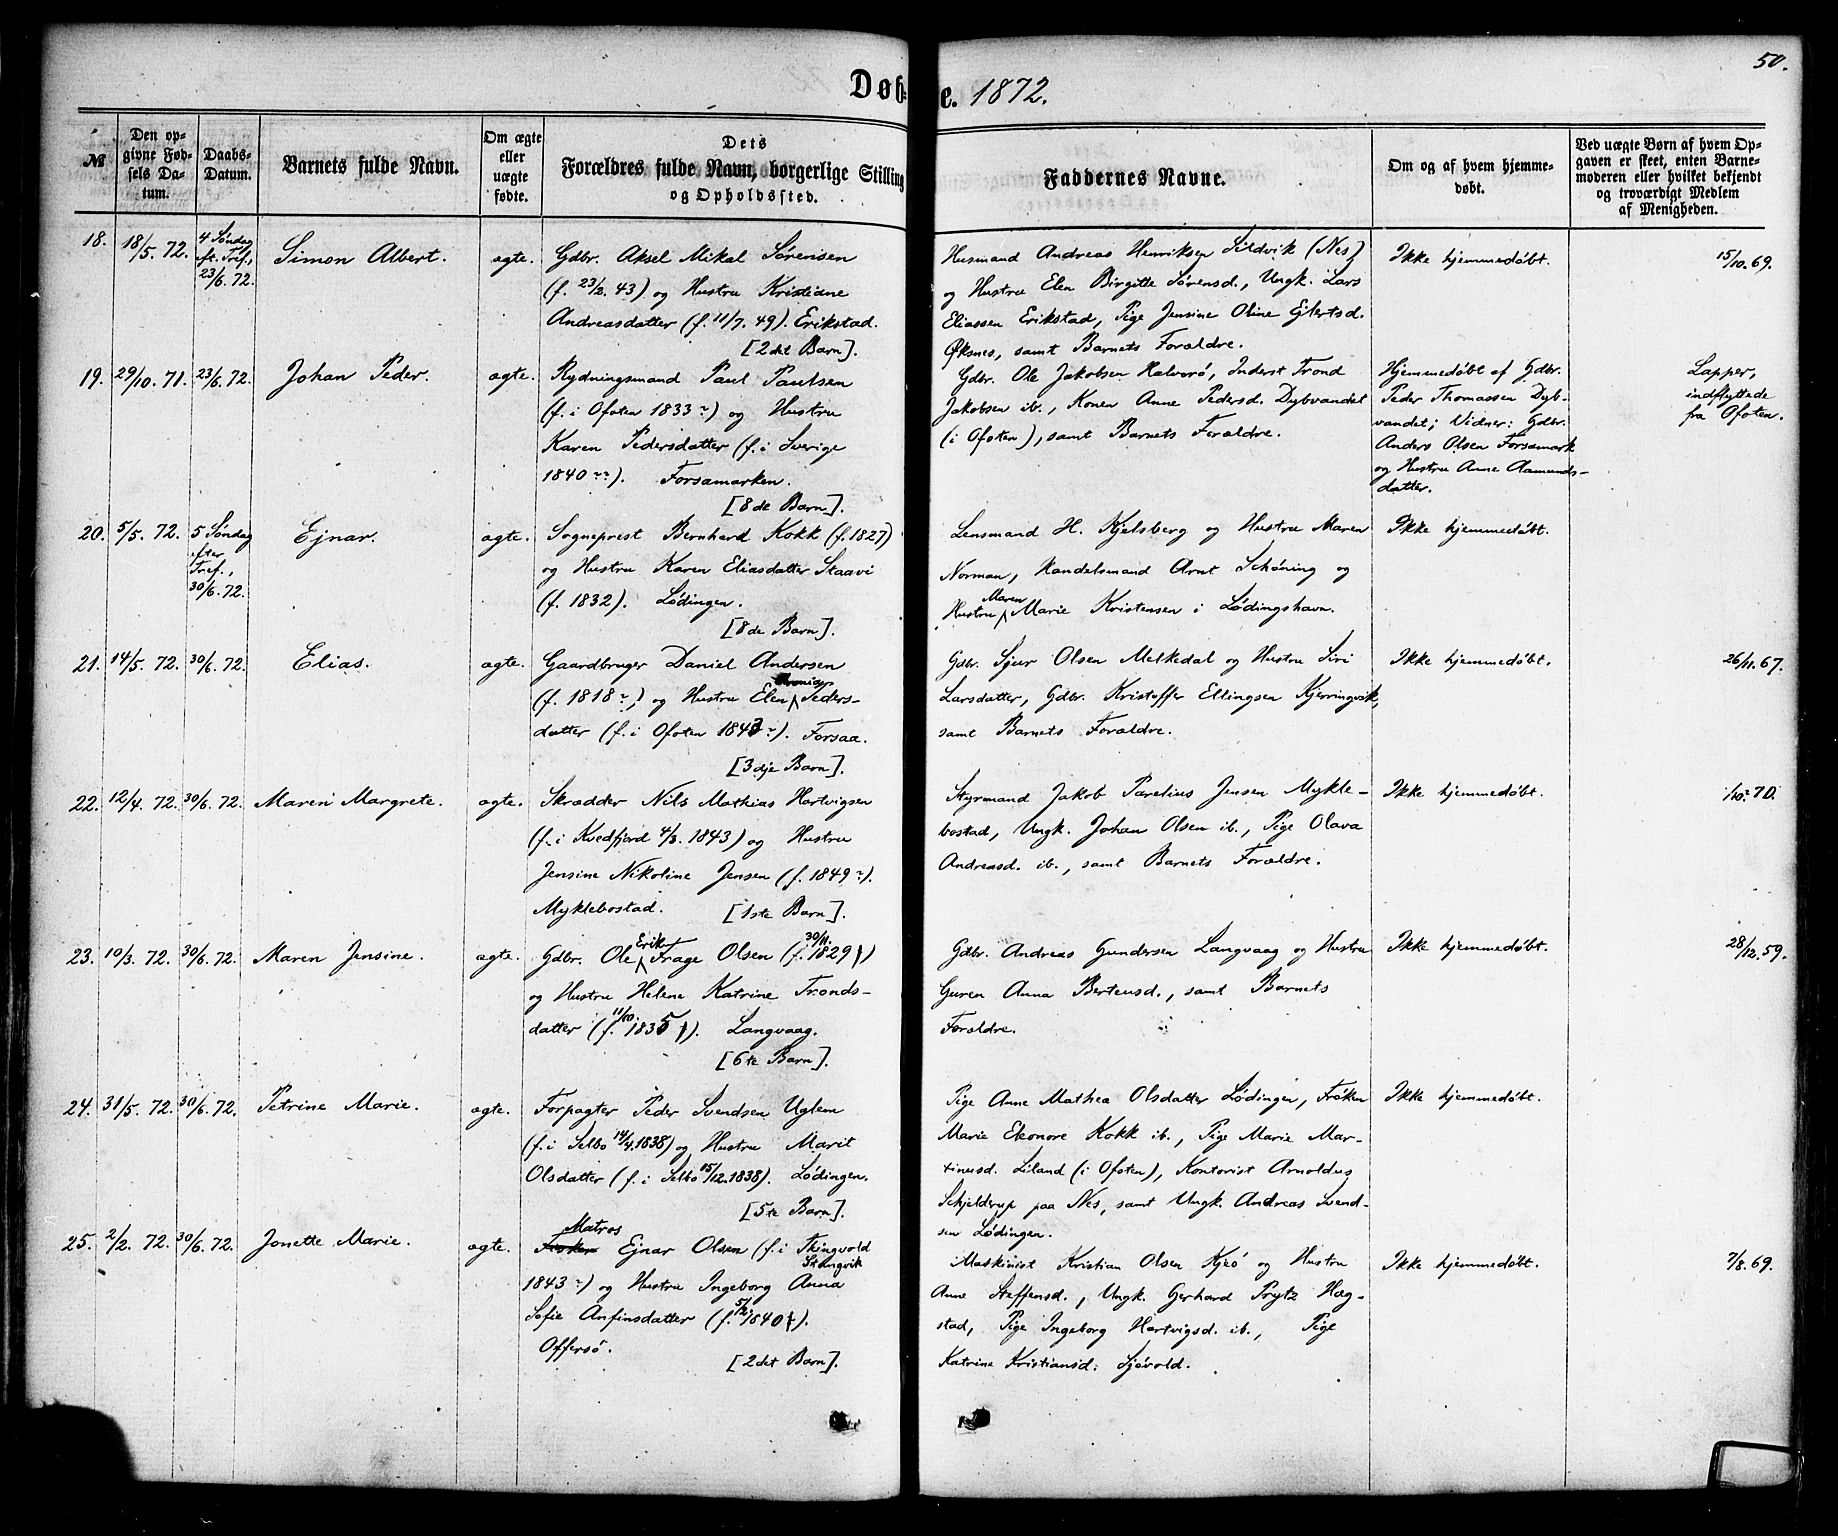 50.
Døbte. 1872.
№
Den opgivne Fødsels Datum.
Daabs-Datum.
Barnets fulde Navn.
Om ægte eller uægte fødte.
Dets Forældres fulde Navn, borgerlige Stilling og Opholdssted.
Faddernes Navne.
Om og af hvem hjemmedøbt.
Ved uægte Børn af hvem Opgaven er skeet, enten Barnemoderen eller hvilket bekjendt og troværdigt Medlem af Menigheden.
18. 18/5. 72. 4 Søndag eft. Tref., 23/6. 72. Simon Albert. ægte.
Gdbr. Aksel Mikal Sørensen
(f. 23/2. 43) og Hustru Kristiane
Andreasdatter (f. 11/7. 49). Erikstad.
[2det Barn].
Husmand Andreas Henriksen Sildvik (Nes)
og Hustru Elen Birgitte Sørensd., Ungk. Lars
Eliassen Erikstad, Pige Jensine Oline Ejlertsd.
Øksnes, samt Barnets Forældre.
Ikke hjemmedøbt.
15/10. 69.
19. 29/10. 71. 23/6. 72. Johan Peder. ægte.
Rydningsmand Paul Paulsen
(f. i Ofoten 1833 ~) og Hustru
Karen Pedersdatter (f. i Sverige
1840 ~~). Forsamarken.
[8de Barn].
Gdbr. Ole Jakobsen Halvarö, Inderst Trond
Jakobsen ib., Konen Anne Pedersd. Dybvandet
(i Ofoten), samt Barnets Forældre.
Hjemmedøbt af Gdbr.
Peder Thomassen Dyb-
vandet; Vidner: Gdbr.
Anders Olsen Forsamark
og Hustru Anne Aamunds-
datter.
Lapper,
indflyttede
fra Ofoten.
20. 5/5. 72. 5 Søndag efter Tref., 30/6. 72. Ejnar. ægte.
Sogneprest Bernhard Kokk (f. 1827)
og Hustru Karen Eliasdatter Staavi
(f. 1832). Lødingen.
[8de Barn].
Lensmand H. Kjelsberg og Hustru Maren
Norman, Handelsmand Arnt Schøning og
Hustru Maren Marie Kristensen i Lødingshavn.
Ikke hjemmedøbt.
21. 14/5. 72. 30/6. 72. Elias. ægte.
Gaardbruger Daniel Andersen
(f. 1818 ~) og Hustru Elen Peders-
datter (f. i Ofoten 1843 ~). Forsaa.
[3dje Barn].
Gdbr. Sjur Olsen Melkedal og Hustru Siri
Larsdatter, Gdbr. Kristoffer Ellingsen Kjerringvik,
samt Barnets Forældre.
Ikke hjemmedøbt.
26/11. 67.
22. 12/4. 72. 30/6. 72. Maren Margrete. ægte.
Skrædder Nils Mathias Hartvigsen
(f. i Kvedfjord 4/3. 1843) og Hustru
Jensine Nikoline Jensen (f. 1849 ~).
Myklebostad. [1ste Barn].
Styrmand Jakob Parelius Jensen Mykle-
bostad, Ungk. Johan Olsen ib., Pige Olava
Andreasd. ib., samt Barnets Forældre.
Ikke hjemmedøbt.
1/10. 70.
23. 10/3. 72. 30/6. 72. Maren Jensine. ægte.
Gdbr. Ole Erik Frage Olsen (f. 30/11. 1829)
og Hustru Helene Katrine Tronds-
datter (f. 11/10. 1835). Langvaag.
[6te Barn].
Gdbr. Andreas Gundersen Langvaag og Hustru
Guren Anna Bertensd., samt Barnets
Forældre.
Ikke hjemmedøbt.
28/12. 59.
24. 31/5. 72. 30/6. 72. Petrine Marie. ægte.
Forpagter Peder Svendsen Uglem
(f. i Selbo 14/4. 1838) og Hustru Marit
Olsdatter (f. i Selbo 15/12. 1838). Lødingen.
[5te Barn].
Pige Anne Mathea Olsdatter Lødingen, Frøken
Marie Elenore Kokk ib., Pige Marie Mar-
tinusd. Liland (i Ofoten), Kontorist Arnoldus
Schjelderup paa Nes, samt Ungk. Andreas Svend-
sen Lødingen.
Ikke hjemmedøbt.
25. 2/2. 72. 30/6. 72. Jonette Marie. ægte.
Matros
Fisker Ejnar Olsen (f. i Thingvold
Stangvik
1843 ~) og Hustru Ingeborg Anna
Sofie Anfinsdatter (f. 5/12. 1840).
Offersø. [2det Barn].
Maskinist Kristian Olsen Kjeø og Hustru
Anne Steffensd., Ungk. Gerhard Prytz Hæg-
stad, Pige Ingeborg Hartvigsd. ib., Pige
Katrine Kristiansd. Sjøvold.
Ikke hjemmedøbt.
7/8. 69.